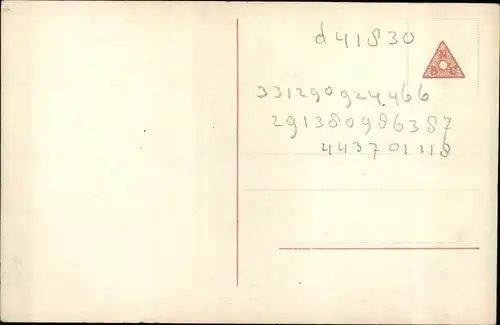 d41830
331290924466
291380986387
443701118